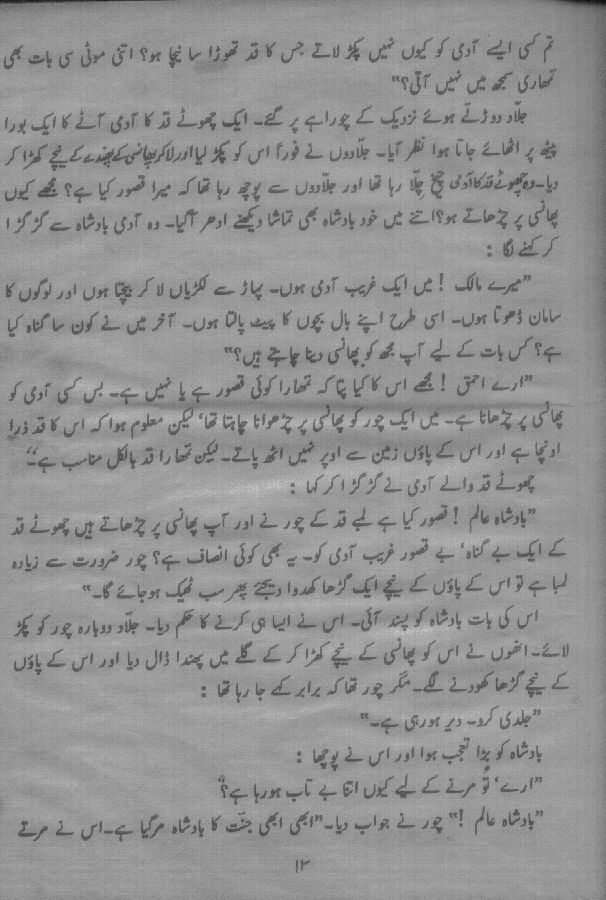 تم کسی ایسے آدمی کو کیوں نہیں پکڑ لاتے جس کا قد تھوڑا سا نیچا ہو؟ اتنی موٹی سی بات بھی
تمھاری سمجھ میں نہیں آتی؟"
جلّاد دوڑتے ہوئے نزدیک کے چوراہے پر گئے۔ ایک چھوٹے قد کا آدمی آٹے کا ایک بورا
پیٹھ پر اٹھائے جاتا ہوا نظر آیا۔ جلّادوں نے فوراً اس کو پکڑ لیا اور لا کر پھانسی کے پھندے کے نیچے کھڑا کر
دیا۔ وہ چھوٹے قد کا آدمی چیخ چلّا رہا تھا اور جلّادوں سے پوچھ رہا تھا کہ میرا قصور کیا ہے؟ مجھے کیوں
پھانسی پر چڑھاتے ہو؟ اتنے میں خود بادشاہ بھی تماشا دیکھنے ادھر آگیا۔ وہ آدمی بادشاہ سے گڑگڑا
کر کہنے لگا :
"میرے مالک ! میں ایک غریب آدمی ہوں۔ پہاڑ سے لکڑیاں لا کر بیچتا ہوں اور لوگوں کا
سامان ڈھوتا ہوں۔ اسی طرح اپنے بال بچوں کا پیٹ پالتا ہوں۔ آخر میں نے کون سا گناہ کیا
ہے؟ کس بات کے لیے آپ مجھ کو پھانسی دینا چاہتے ہیں؟"
"ارے احمق ! مجھے اس کا کیا پتا کہ تمھارا کوئی قصور ہے یا نہیں ہے۔ بس کسی آدمی کو
پھانسی پر چڑھانا ہے۔ میں ایک چور کو پھانسی پر چڑھوانا چاہتا تھا، لیکن معلوم ہوا کہ اس کا قد ذرا
اونچا ہے اور اس کے پاؤں زمین سے اوپر نہیں اٹھ پاتے۔ لیکن تمھارا قد بالکل مناسب ہے۔"
چھوٹے قد والے آدمی نے گڑگڑا کر کہا :
"بادشاہ عالم ! قصور کیا ہے لمبے قد کے چور نے اور آپ پھانسی پر چڑھاتے ہیں چھوٹے قد
کے ایک بے گناہ، بے قصور غریب آدمی کو۔ یہ بھی کوئی انصاف ہے؟ چور ضرورت سے زیادہ
لمبا ہے تو اس کے پاؤں کے نیچے ایک گڑھا کھدوا دیجیے پھر سب ٹھیک ہوجائے گا۔"
اس کی بات بادشاہ کو پسند آئی۔ اس نے ایسا ہی کرنے کا حکم دیا۔ جلّاد دوبارہ چور کو پکڑ
لائے۔ انھوں نے اس کو پھانسی کے نیچے کھڑا کر کے گلے میں پھندا ڈال دیا اور اس کے پاؤں
کے نیچے گڑھا کھودنے لگے۔ مگر چور تھا کہ برابر کہے جا رہا تھا :
"جلدی کرو۔ دیر ہو رہی ہے۔"
بادشاہ کو بڑا تعجب ہوا اور اس نے پوچھا :
"ارے، تو مرنے کے لیے کیوں اتنا بے تاب ہو رہا ہے؟"
"بادشاہ عالم !" چور نے جواب دیا۔ "ابھی ابھی جنّت کا بادشاہ مرگیا ہے۔ اس نے مرتے
۱۳